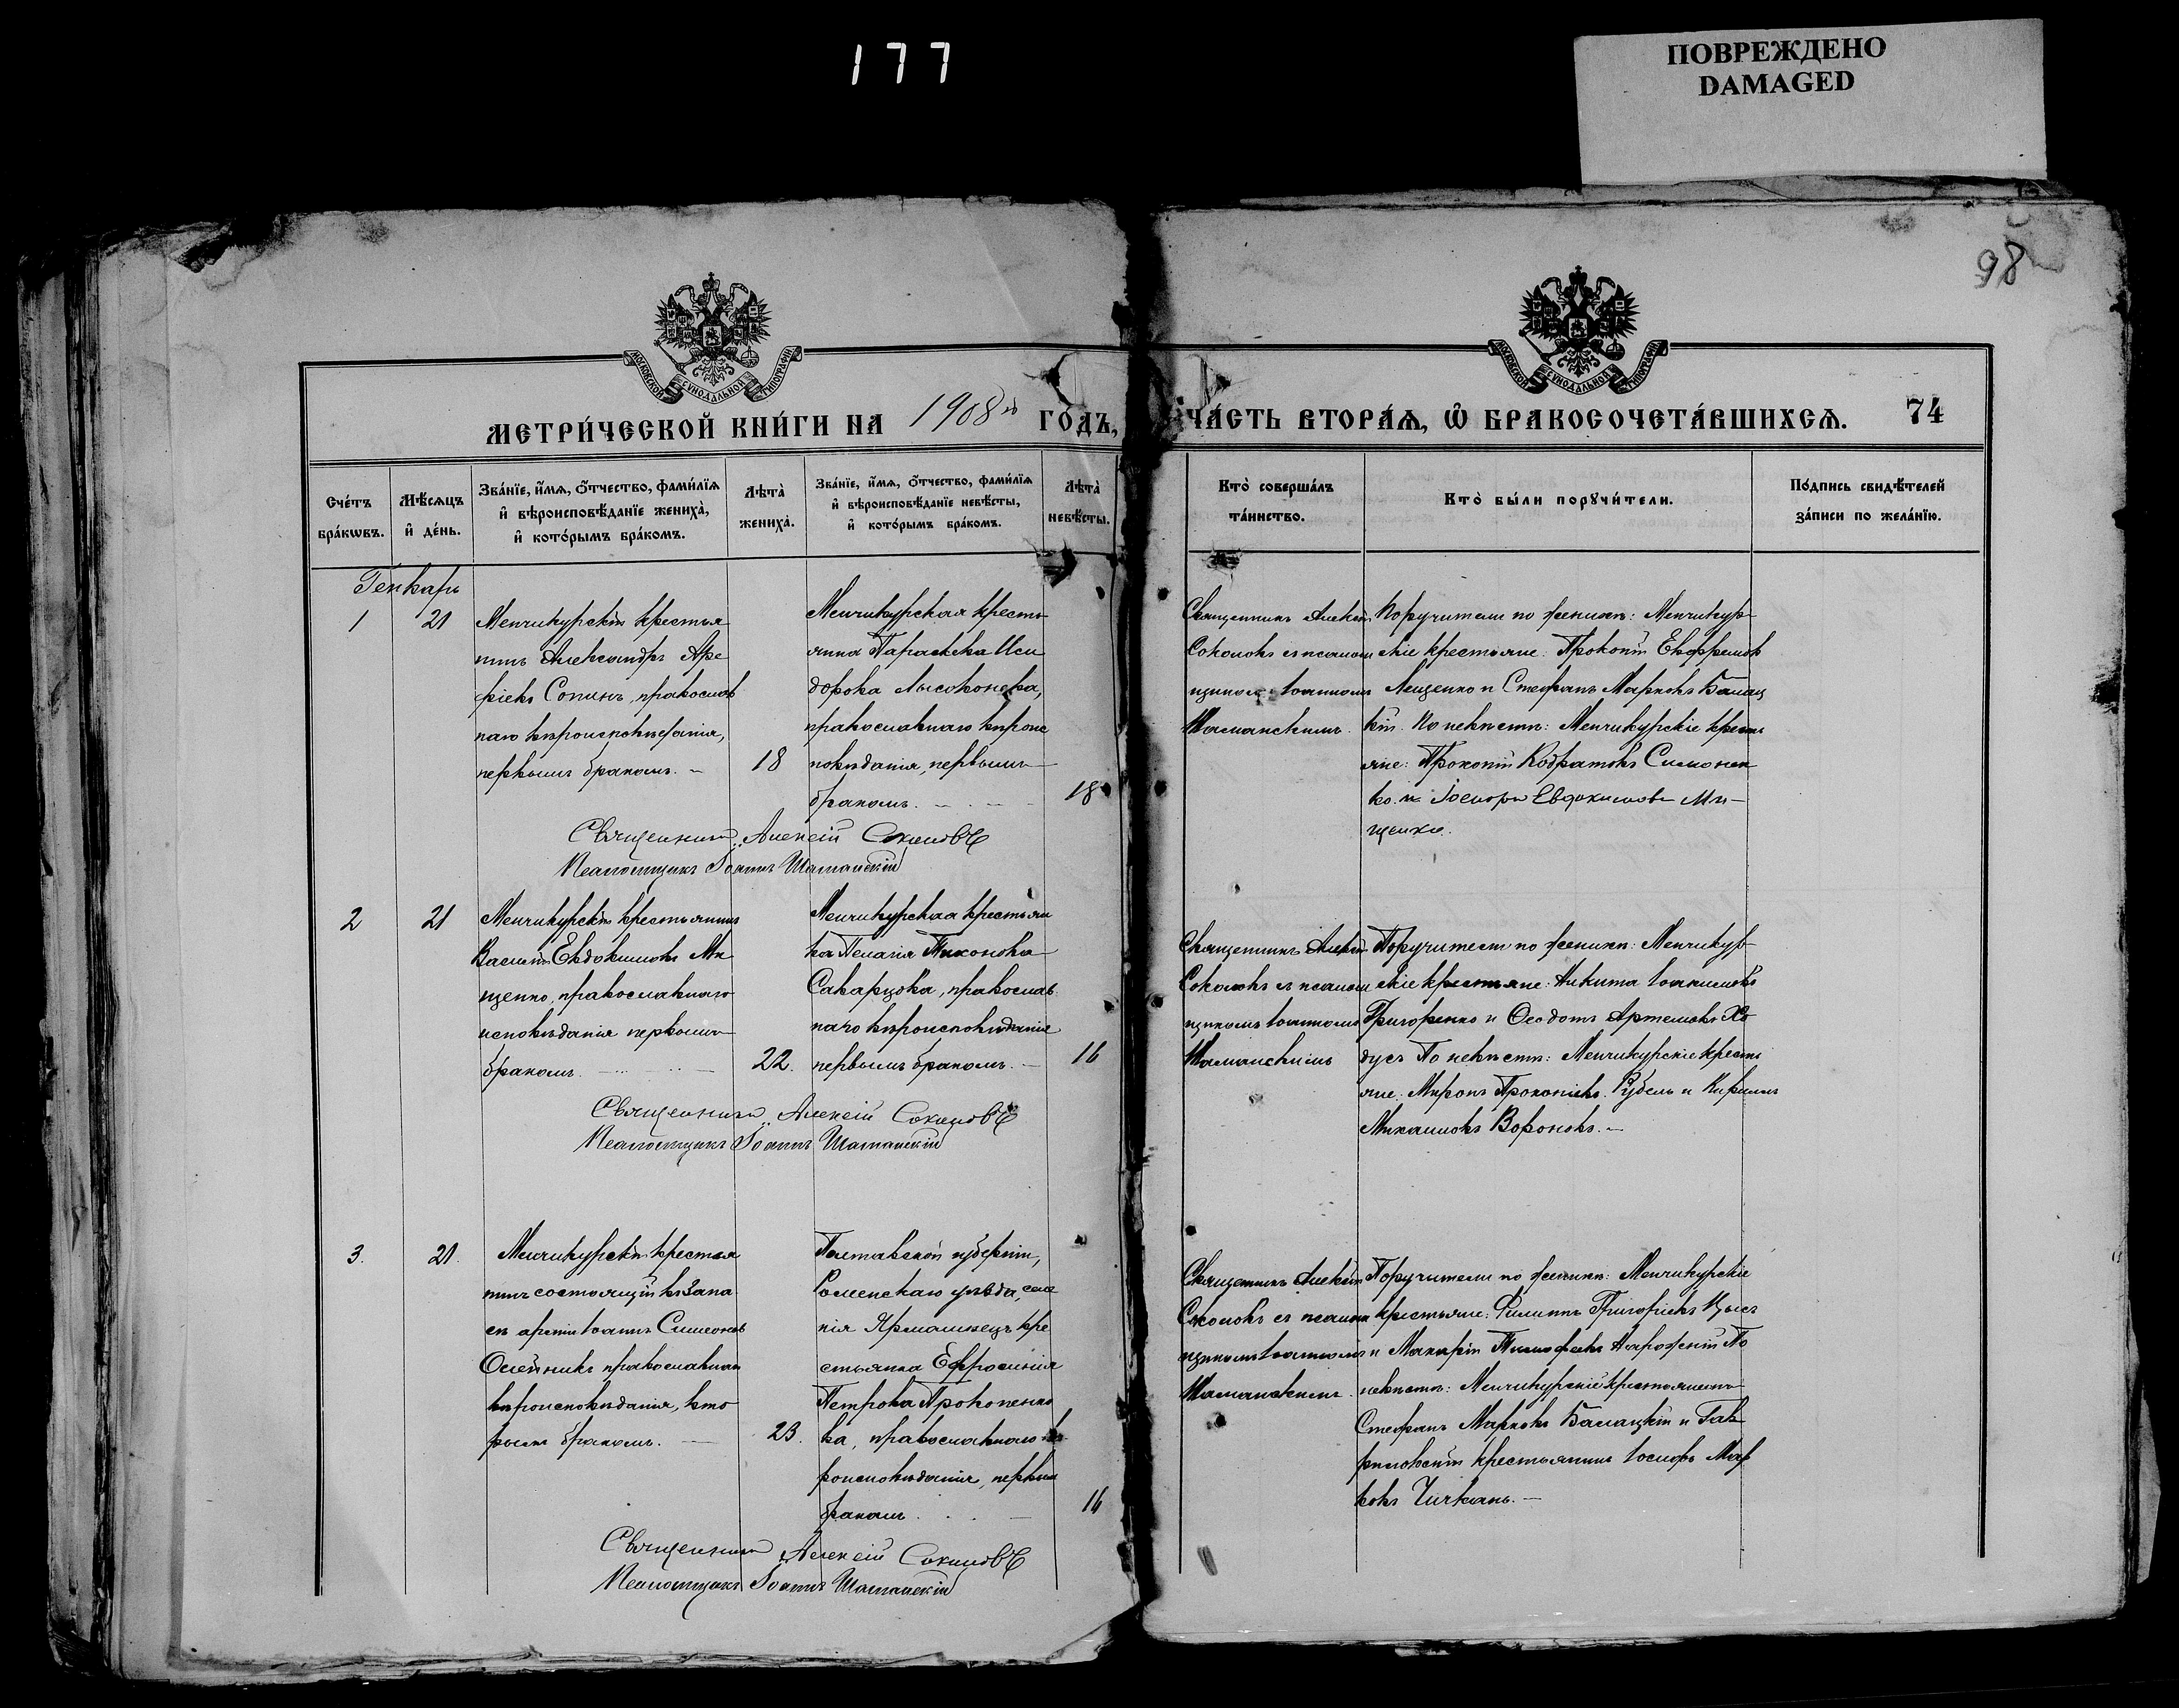 177
ПОВРЕЖДЕНО
DAMAGED
98
МОСКОВСКОЙ СУНОДАЛЬНОЙ ТИПОГРАФІИ
МОСКОВСКОЙ СУНОДАЛЬНОЙ ТИПОГРАФІИ
МЕТРИ́ЧЕСКОЙ КНИ́ГИ НА 1908й ГО́ДЪ,
ЧА́СТЬ ВТОРА́Ѧ, Ѽ БРАКОСОЧЕТА́ВШИХСѦ. 74
Сче́тъ
бра́кѡвъ.
Мѣ́сѧцъ
и҆ де́нь.
Зва́нїе, и҆́мѧ, ѻ҆́тчество, фами́лїѧ
и҆ вѣроисповѣ́данїе жениха̀,
и҆ кото́рымъ бра́комъ.
Лѣта̀
жениха̀.
Зва́нїе, и҆́мѧ, ѻ҆́тчество, фами́лїѧ
и҆ вѣроисповѣ́данїе невѣ́сты,
и҆ кото́рымъ бра́комъ.
Лѣта̀
невѣ́сты.
Кто̀ соверша́лъ
та́инство.
Кто̀ бы́ли порꙋчи́тели.
По́дпись свидѣ́телей
за́писи по жела́нїю.
Генварь
1
21
Менчикурскій крестья
нинъ Александръ Аре
фіевъ Сопинъ, православ
наго вѣроисповѣданія,
первымъ бракомъ.
18
Менчикурская кресть
янка Параскева Иси
дорова Лысоконева,
православнаго вѣроис
повѣданія, первымъ
бракомъ.
18
Священникъ Алексій
Соколовъ съ псалом
щикомъ Іоанномъ
Шаманскимъ.
Поручители по женихѣ: Менчикур
скіе крестьяне: Прокопій Евфремов
Лещенко и Стефанъ Марковъ Балац
кій. По невѣстѣ: Менчикурскіе кресть
яне: Прокопій Кодратовъ Симонен
ко и Іосифъ Евдокимовъ Ми
щенко.
Священникъ Алексій Соколовъ
Псаломщикъ Іоаннъ Шаманскій
2
21
Менчикурскій крестьянинъ
Василій Евдокимовъ Ми
щенко, православнаго
исповѣданія первымъ
бракомъ.
22.
Менчикурская крестьян
ка Пелагія Тихонова
Саварцова, православ
наго вѣроисповѣданія
первымъ бракомъ.
16
Священникъ Алексій
Соколовъ съ псалом
щикомъ Іоанномъ
Шаманскимъ
Поручители по женихѣ: Менчикур
скіе крестьяне: Никита Іоакимовъ
Григоренко и Ѳеодотъ Артемовъ Хо
дусъ По невѣстѣ: Менчикурскіе кресть
яне: Миронъ Прокопіевъ Рубель и Кириллъ
Михаиловъ Вороновъ.
Священникъ Алексій Соколовъ
Псаломщикъ Іоаннъ Шаманскій
3.
21.
Менчикурскій крестья
нинъ состоящій въ запа
сѣ арміи Іоаннъ Симеонов
Олейникъ православнаго
вѣроисповѣданія, вто
рымъ бракомъ.
23.
Полтавской губерніи,
Роменскаго уѣзда, селе
нія Ярмашнецъ кре
стьянка Ефросинія
Петрова Прокопенко
ва, православнаго вѣ
роисповѣданія, первым
бракомъ.
16
Священникъ Алексій
Соколовъ съ псалом
щикомъ Іоанномъ
Шаманскимъ.
Поручители по женихѣ: Менчикурскіе
крестьяне: Филиппъ Григорьевъ
и Макарій Тимофеевъ По
невѣстѣ: Менчикурскіе крестьянинъ
Стефанъ Марковъ Балацкій и Гав
риловскій крестьянинъ Іосифъ Мар
ковъ Чичкань.
Священникъ Алексій Соколовъ
Псаломщикъ Іоаннъ Шаманскій